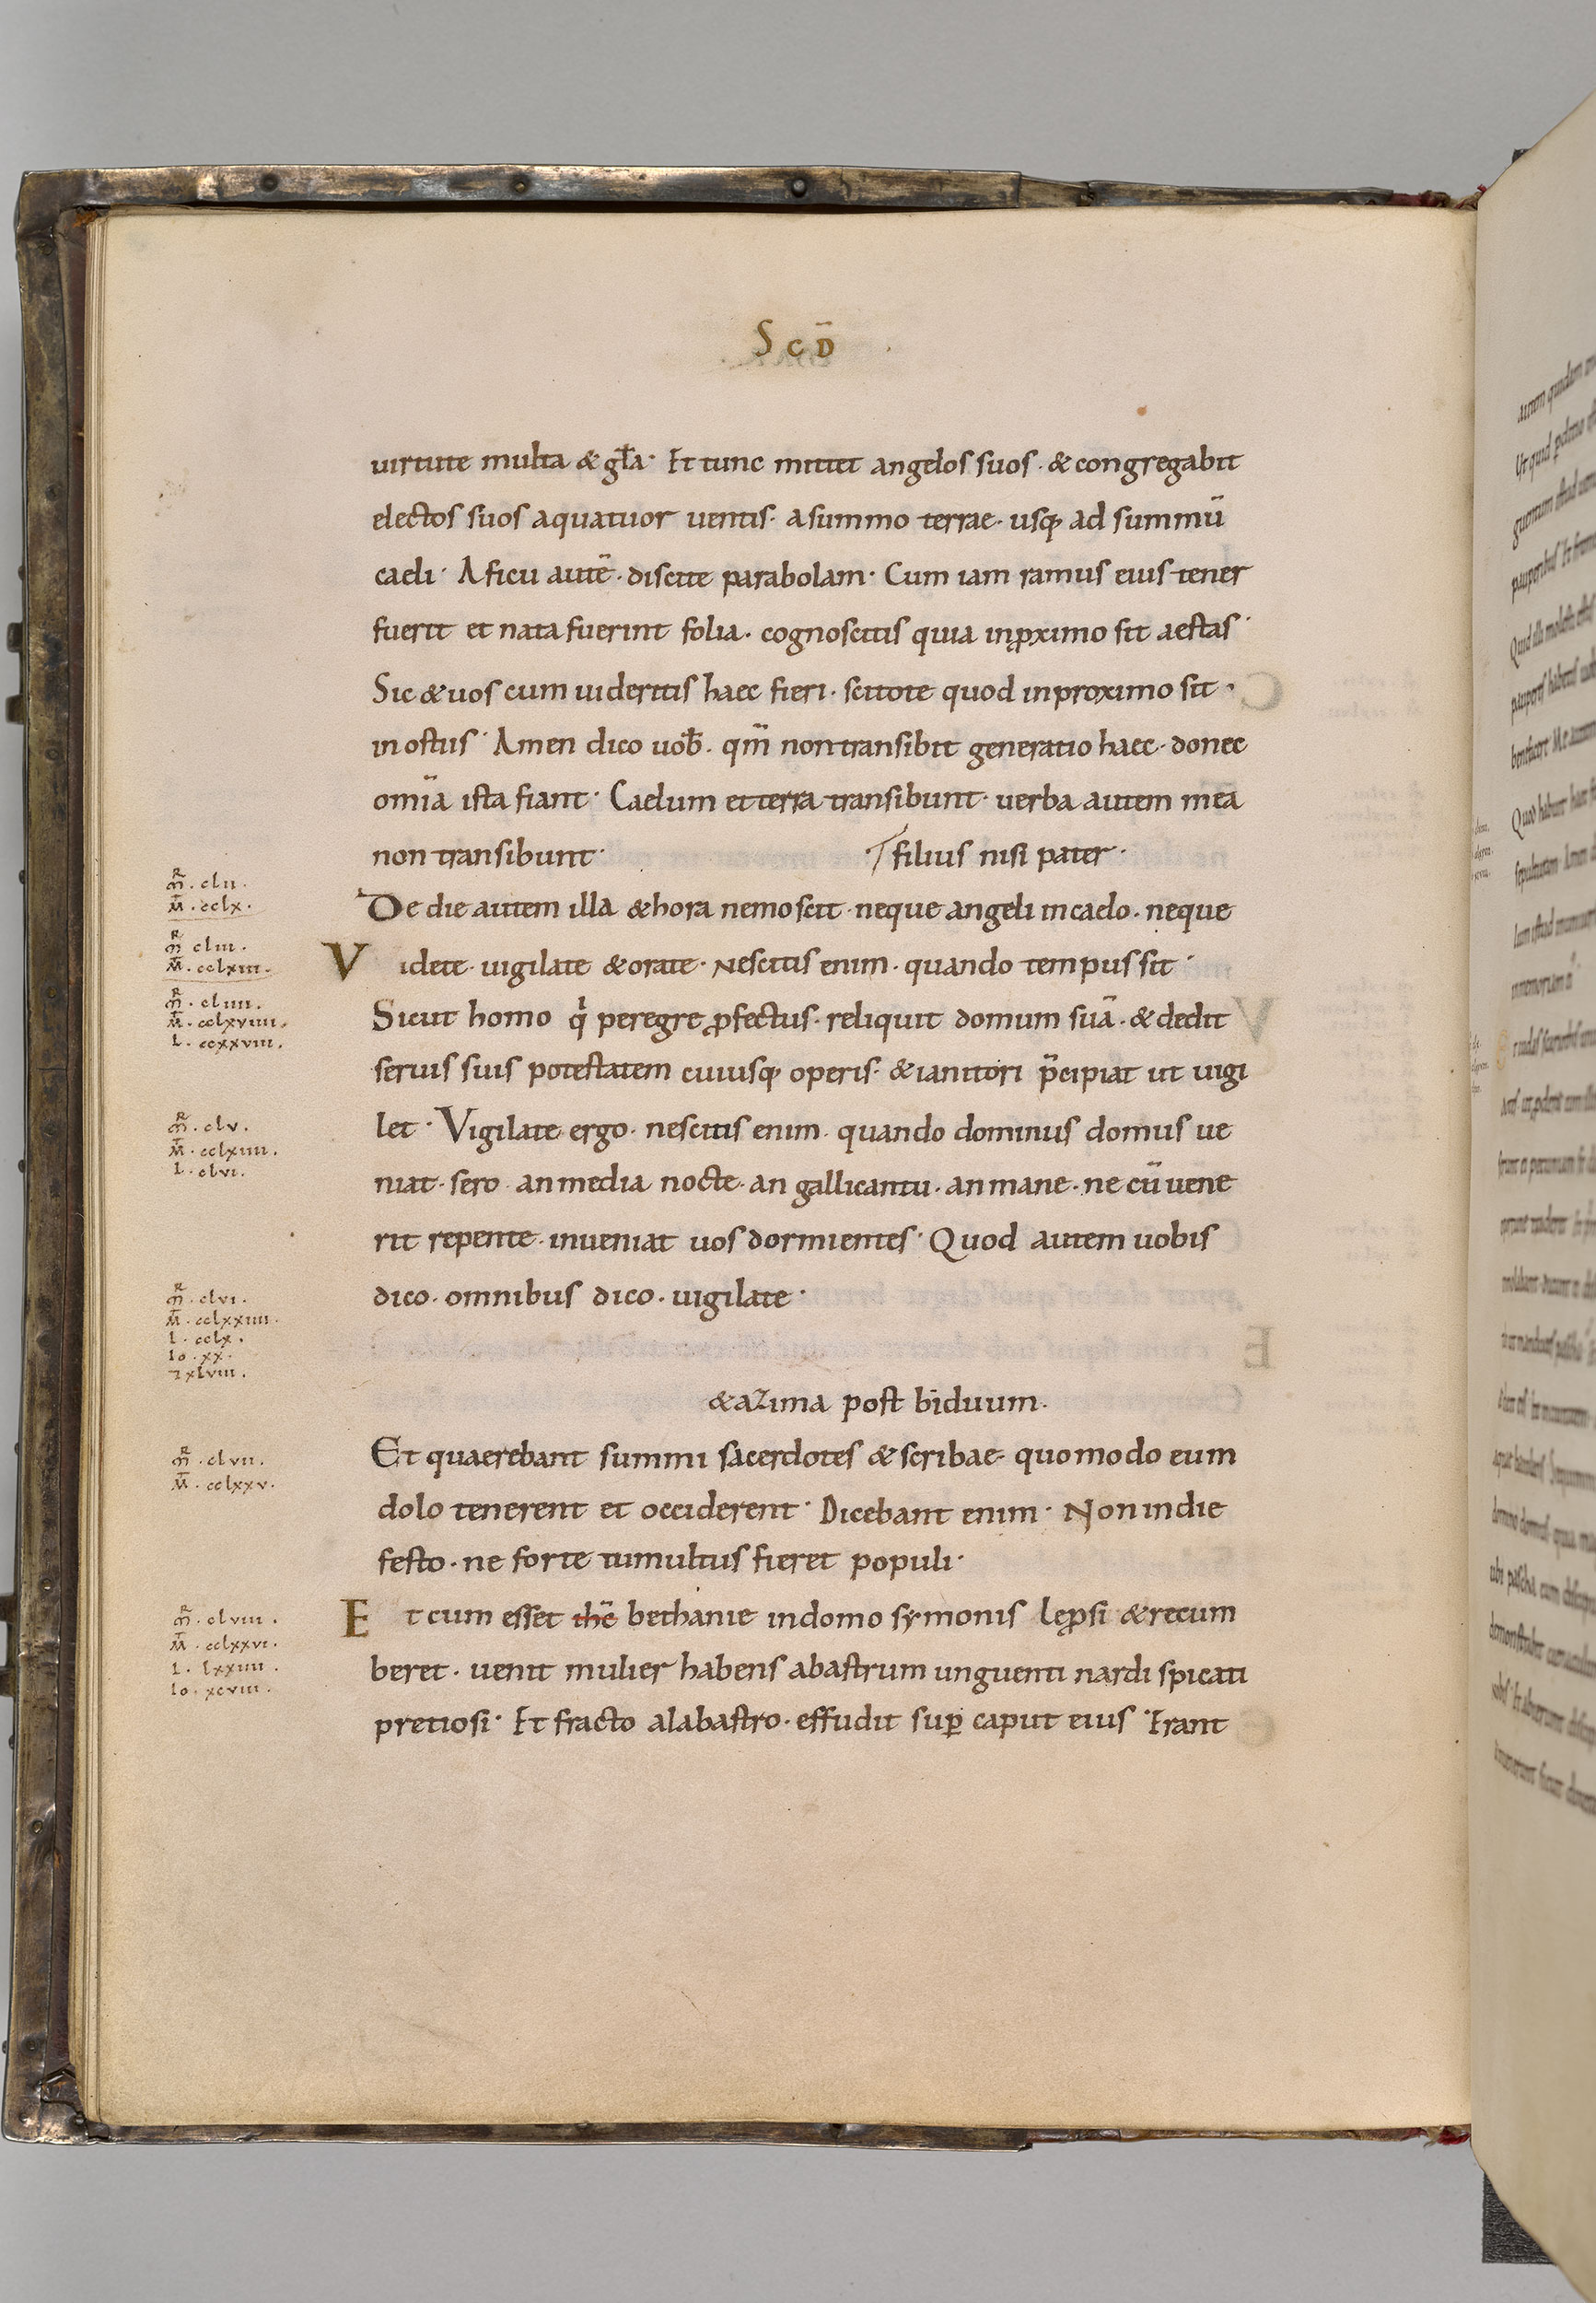 Scd̄
uirtute multa & gl̄a· Et tunc mittet angelos suos · & congregabit
electos suos aquatuor uentis· asummo terrae· usq; ad summū
caeli· A ficu autē· discite parabolam· Cum iam ramus eius tener
fuerit et nata fuerint folia· cognoscitis quia inꝓximo sit aestas·
Sic & uos cum uideritis haec fieri· scitote quod inproximo sit·
in ostius· Amen dico uob̄· qm̄ non transibit generatio haec· donec
omīa ista fiant· Caelum et terra transibunt· uerba autem mea
non transibunt·
filius nisi pater·
De die autem illa & hora nemo scit· neque angeli in caelo· neque
Videte· uigilate & orate· Nescitis enim· quando tempus sit·
Sicut homo qi peregre ꝓfectus· reliquit domum suā· & dedit
seruis suis potestatem cuiusq; operis· & ianitori p̄cipiat ut uigi
let· Vigilate ergo· nescitis enim· quando dominus domus ue
niat· sero· an media nocte· an gallicantu· an mane· ne cū uene
rit repente· inueniat uos dormientes· Quod autem uobis
dico· omnibus dico· uigilate·
& azima post biduum·
Et quaerebant summi sacerdotes & scribae· quomodo eum
dolo tenerent et occiderent· Dicebant enim· Non in die
festo· ne forte tumultus fieret populi·
Et cum esset ihc̄ bethanie in domo symonis leꝓsi & recum
beret· uenit mulier habens abastrum unguenti nardi spicati
pretiosi· Et fracto alabastro· effudit suꝑ caput eius· Erant
m̄R · clii ·
m̄ · cclx ·
m̄R cliii ·
m̄ · cclxiii ·
m̄R · cliiii ·
m̄ · cclxviiii ·
l · ccxxviii ·
m̄R · clv ·
m̄ · cclxiiii ·
l · clvi ·
m̄R · clvi ·
m̄ · cclxxiiii ·
l · cclx ·
io · xx ·
⁊ xlviii ·
m̄R · clvii ·
m̄ · cclxxv ·
m̄R · clviii ·
m̄ · cclxxvi ·
l · lxxiiii ·
io · xcviii ·